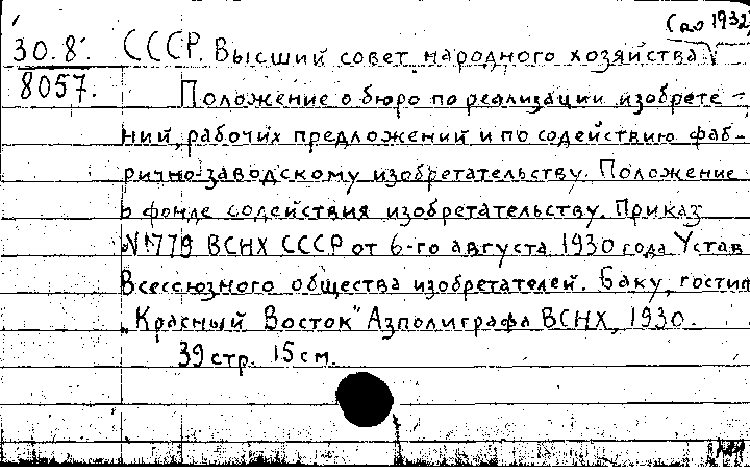 (до 1932)
30.8. СССР. Высший совет народного хозяйства
8057. Положение о бюро по реализации изобрете-
ний, рабочих предложений и по содействию фаб-
рично-заводскому изобретательству. Положение
о фонде содействия изобретательству. Приказ
№1779 ВСНХ СССР от 6-го августа 1930 года Устав
Всесоюзного общества изобретателей. Баку, гостип
"Красный Восток" Азполиграфа ВСНХ, 1930.
39 стр. 15 см.